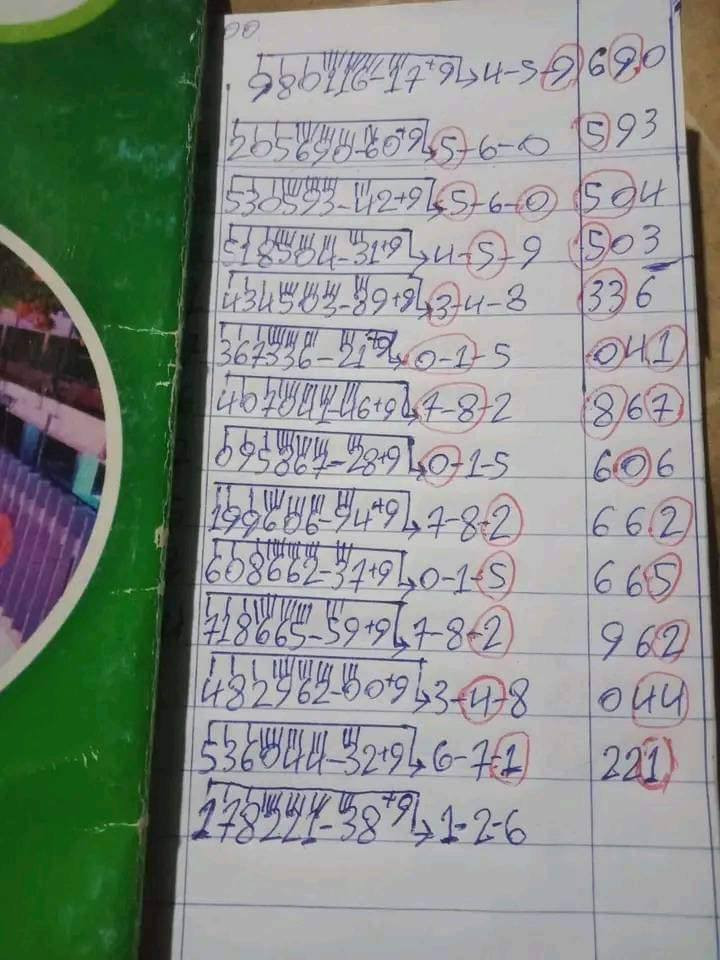 00
980116-17+9→4-5-9 690
205690-60+9→5-6-0 593
530593-42+9→5-6-0 504
518504-31+9→4-5-9 503
434503-89+9→3-4-8 336
367336-21+9→0-1-5 041
407041-46+9→7-8-2 867
995867-28+9→0-1-5 606
199606-94+9→7-8-2 662
608662-37+9→0-1-5 665
718665-59+9→7-8-2 962
482962-00+9→3-4-8 044
536044-32+9→6-7-1 221
178221-38+9→1-2-6